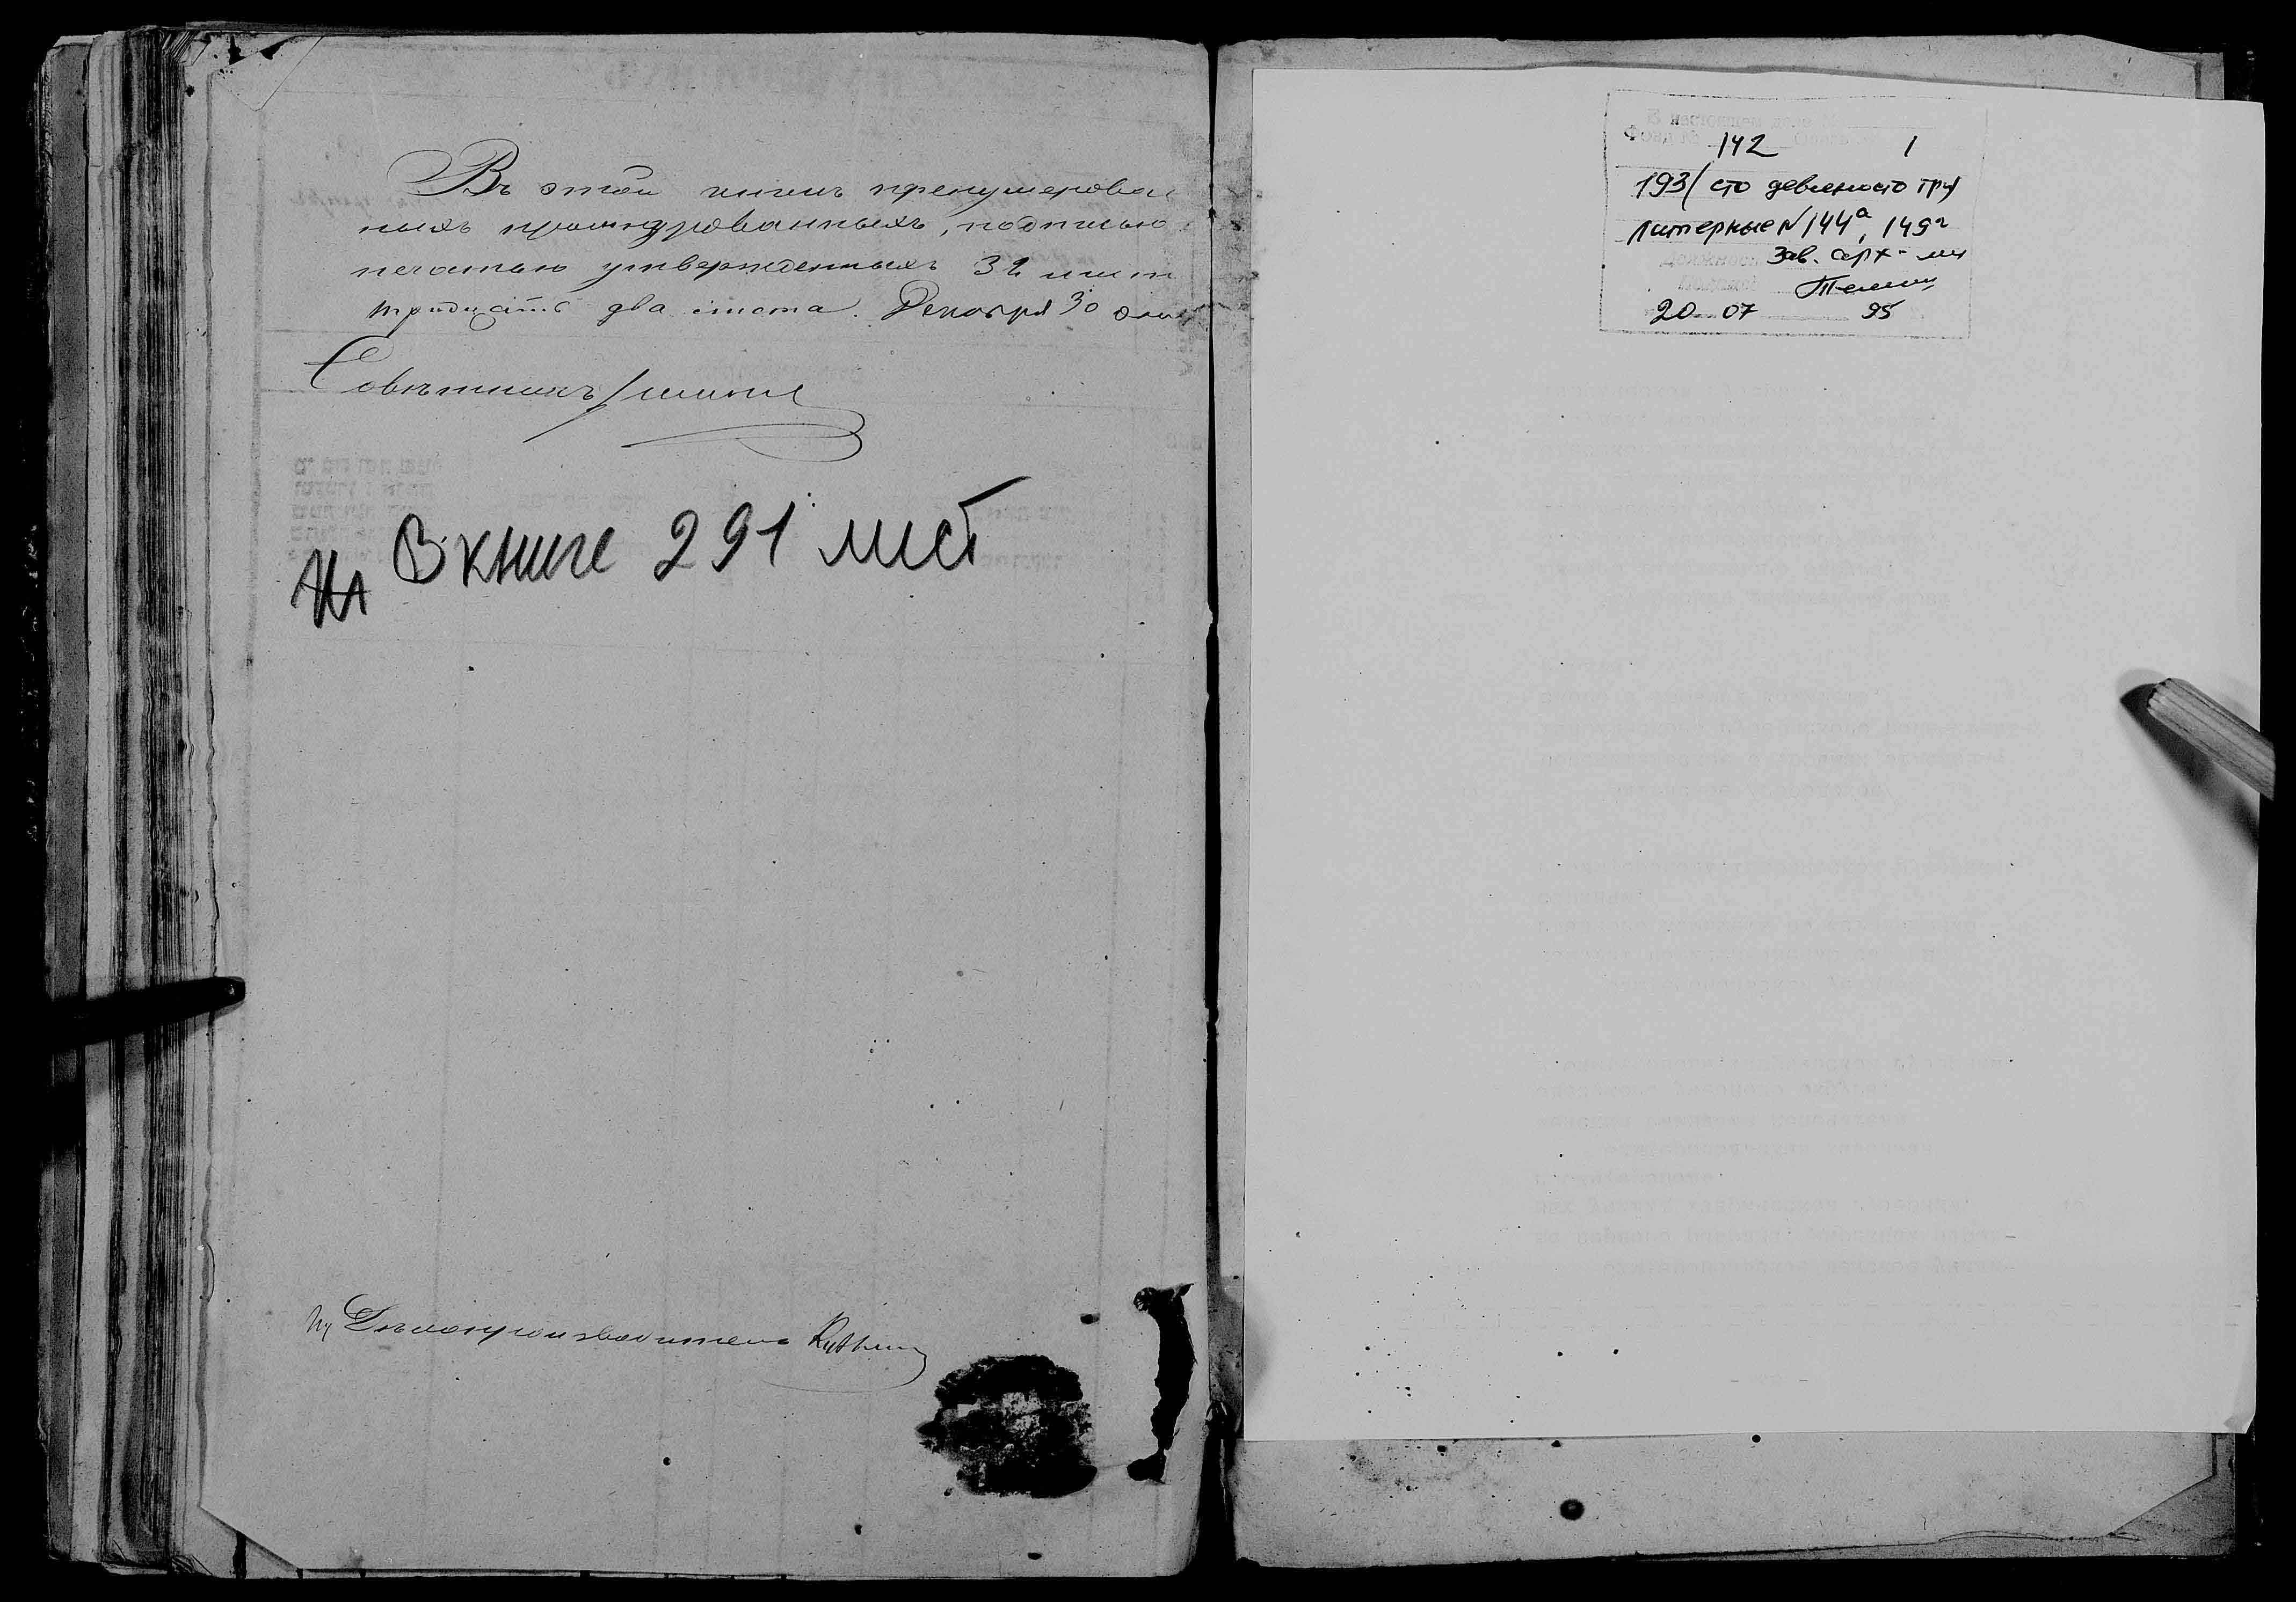 Въ этой книгѣ пренумерован
ныхъ прошнурованныхъ, подписью
печатью утвержденныхъ 32 лист
тридцать два листа. Декабря 30 дня
Совѣтникъ
В книге 291 лист
Дѣлопроизводитель
В настоящем деле
Фонд № 142 Опись 1
193/ сто девяносто три
литерные N 144а, 149г
Зав. арх-м
20 07 95